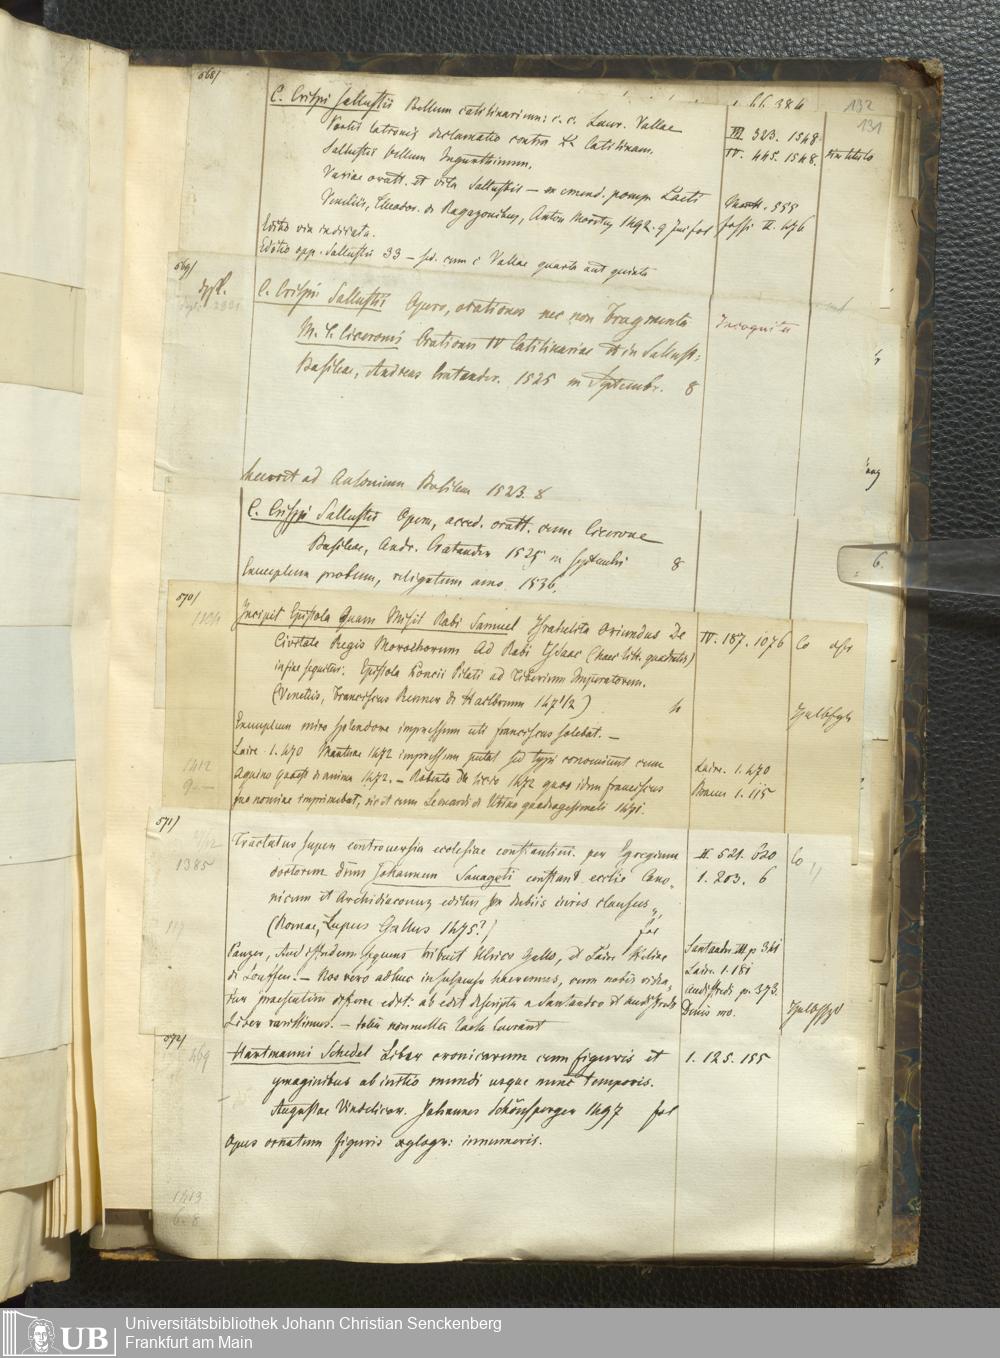 132
131
568/
C. Crispi Sallustii Bellum catilinarium: c. c. Laur. Vallae
Portii latronis declamatio contra L. Catilinam.
Sallustii bellum Jugurthinum.
Variae oratt. et vita Sallustii — ex emend. pomp. Laeti
Venetiis, Theodor. de Ragazonibus, 1492. 9 Jun fol
Editio vix indicata.
Editio opp. Sallustii 33 — sed. cum c Vallae quarta aut quinta
66. 384
III 323. 1548.
IV. 445. 1548. sin titulo
555
fossi II. 476
569/
C. Crispi Sallustii Opera, orationes nec non Fragmenta
M. T. Ciceronis Orationes IV Catilinariae in Sallust:
Basileae, Andreas Cratander. 1525 m Septembr. 8
Incognita
ad Ausonium Basileae 1523. 8
C. Crispi Sallustii Opera, acced. oratt. cum Cicerone
Basileae, Andr. Cratander 1525 m Septembri 8
Exemplum probum, religatum anno 1536.
6.
570/
Incipit Epistola Quam Misit Rabi Samuel Israhelita Oriundus De
Civitate Regis Morochorum Ad Rabi Ysaac (haec litt. quadratis)
in fine sequitur: Epistola Poncii Pilati ad Tiberium Imperatorem.
(Venetiis, Franciscus Renner de Hailbrunn 1471/2) 4
Exemplum miro splendore impressum uti franciscus solebat. —
Laire 1. 470 Mantuae 1472 impressum putat sed typi conveniunt cum
Aquino quaest de anima 1472. — Roberto de licio 1472 quas idem franciscus
suo nomine imprimebat, sicut cum Leonardi de Utino quadragesimali 1471.
IV. 187. 1076 Co
Laire. 1. 470
Braun 1. 115
1412
571/
1385
Tractatus super controversia ecclesiae constantien. per Egregium
doctorem dnm Johannem Savageti constant. ecclie Cano-
nicum et Archidiaconum editus pro dubiis iuris clausus
(Romae, Lupus Gallus 1475?) fol
Panzer, Audiffredum sequens tribuit Ulrico Gallo, et Laire
Nos vero adhuc in suspenso haeremus, cum nobis videa-
tur praesentem differre edit: ab edit descripta a Santandro et Audiffredo
Liber rarissimus. —
II. 521. 620 Co
1. 203. 6
Santander III. p 341
Laire 1. 181
Audiffredi p. 373.
Denis
572/
469
Hartmanni Schedel Liber cronicarum cum figuris et
ymaginibus ab initio mundi usque nunc temporis.
Augustae Vindelicor. Johannes Schönsperger 1497 fol
Opus ornatum figuris xylogr: innumeris.
1. 125. 155
1413
UB
Universitätsbibliothek Johann Christian Senckenberg
Frankfurt am Main